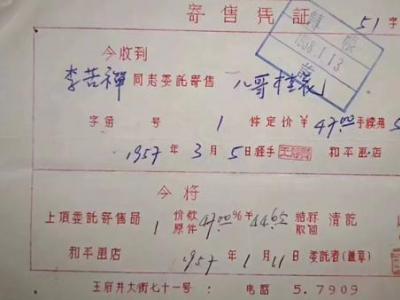 寄售凭証 51字
1958.1.13
今收到
李苦禅 同志委託寄售 八哥
字 号 1 件定价¥ 47.00 手續
1957 年 3 月 5 日經手 和平画店
今将
上項委託寄售品 1 价款原件 47.00 結算取回 清訖
和平画店 1957 年 1 月 11 日 委託者(蓋章)
王府井大街七十一号: 电話 5.7909